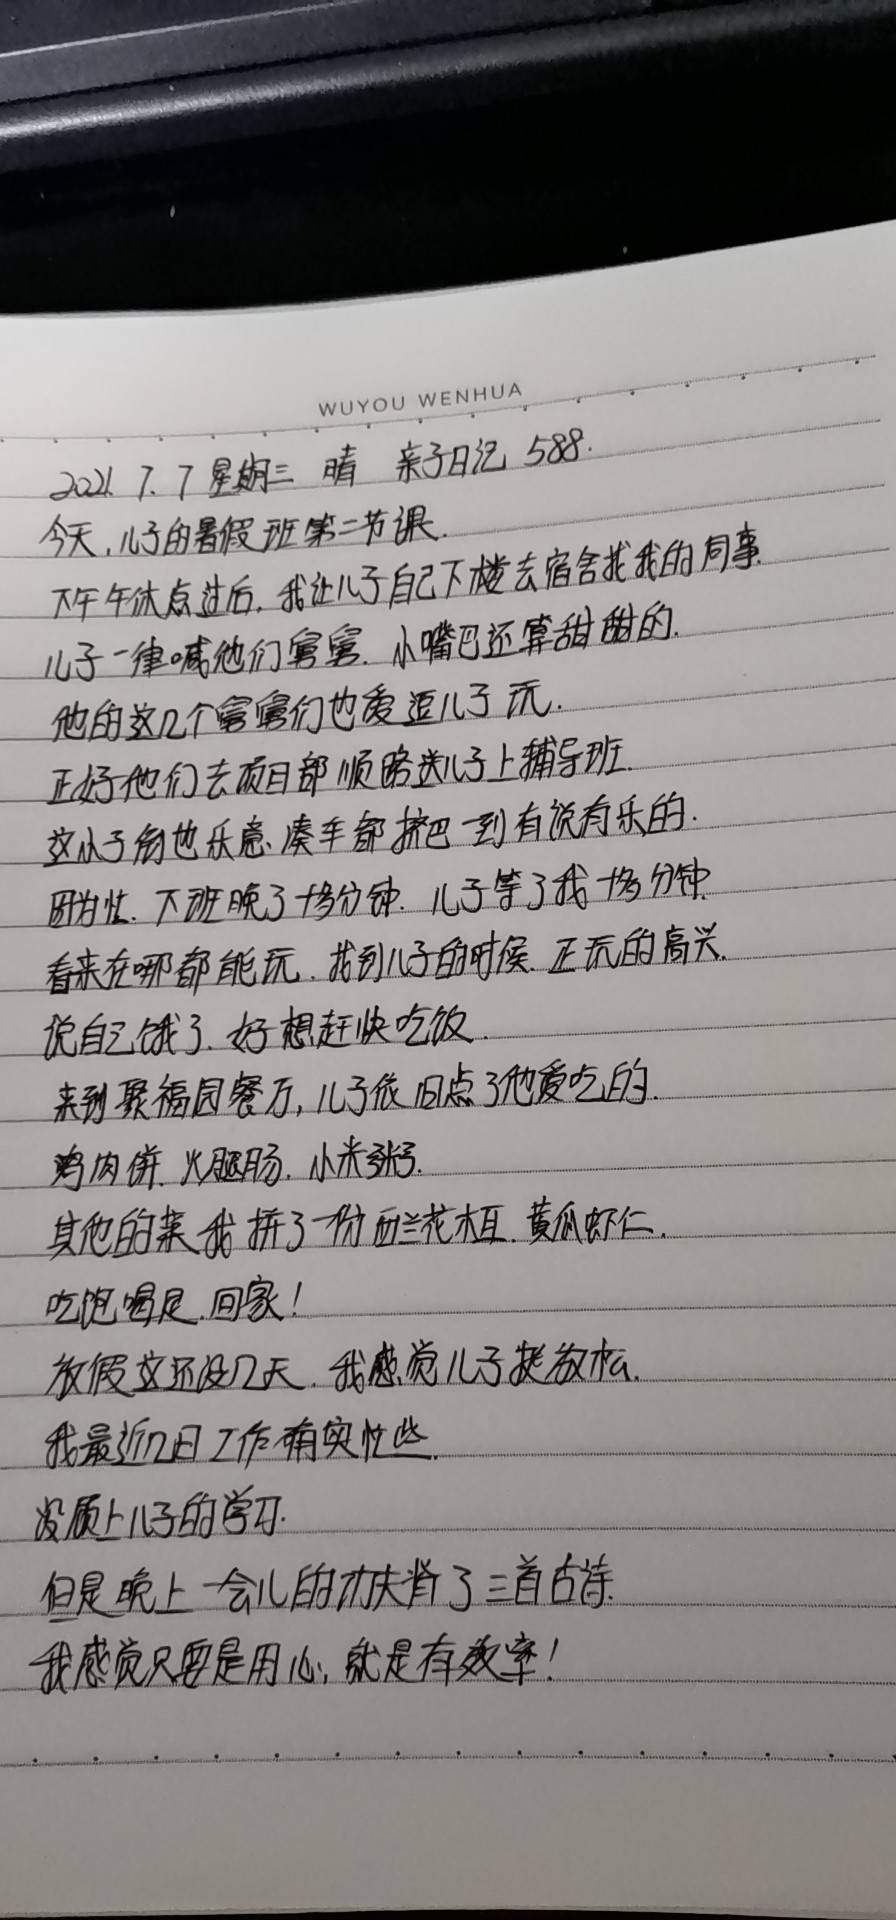 WUYOU WENHUA
2021. 7. 7 星期三 晴 亲子日记 588.
今天,儿子的暑假班第二节课.
下午午休点过后,我让儿子自己下楼去宿舍找我的同事.
儿子一律喊他们舅舅.小嘴巴还算甜甜的.
他的这几个舅舅们也爱逗儿子玩.
正好他们去项目部顺路送儿子上辅导班.
这小子倒也乐意、凑车都挤巴一到有说有乐的.
因为忙.下班晚了十多分钟.儿子等了我十多分钟.
看来在哪都能玩.找到儿子的时候.正玩的高兴.
说自己饿了.好想赶快吃饭.
来到聚福园餐厅,儿子依旧点了他爱吃的.
鸡肉饼.火腿肠.小米粥.
其他的菜我拼了一份西兰花木耳.黄瓜虾仁.
吃饱喝足.回家!
放假这还没几天.我感觉儿子挺放松.
我最近几日工作确实忙些.
没顾上儿子的学习.
但是晚上一会儿的功夫背了三首古诗.
我感觉只要是用心,就是有效率!